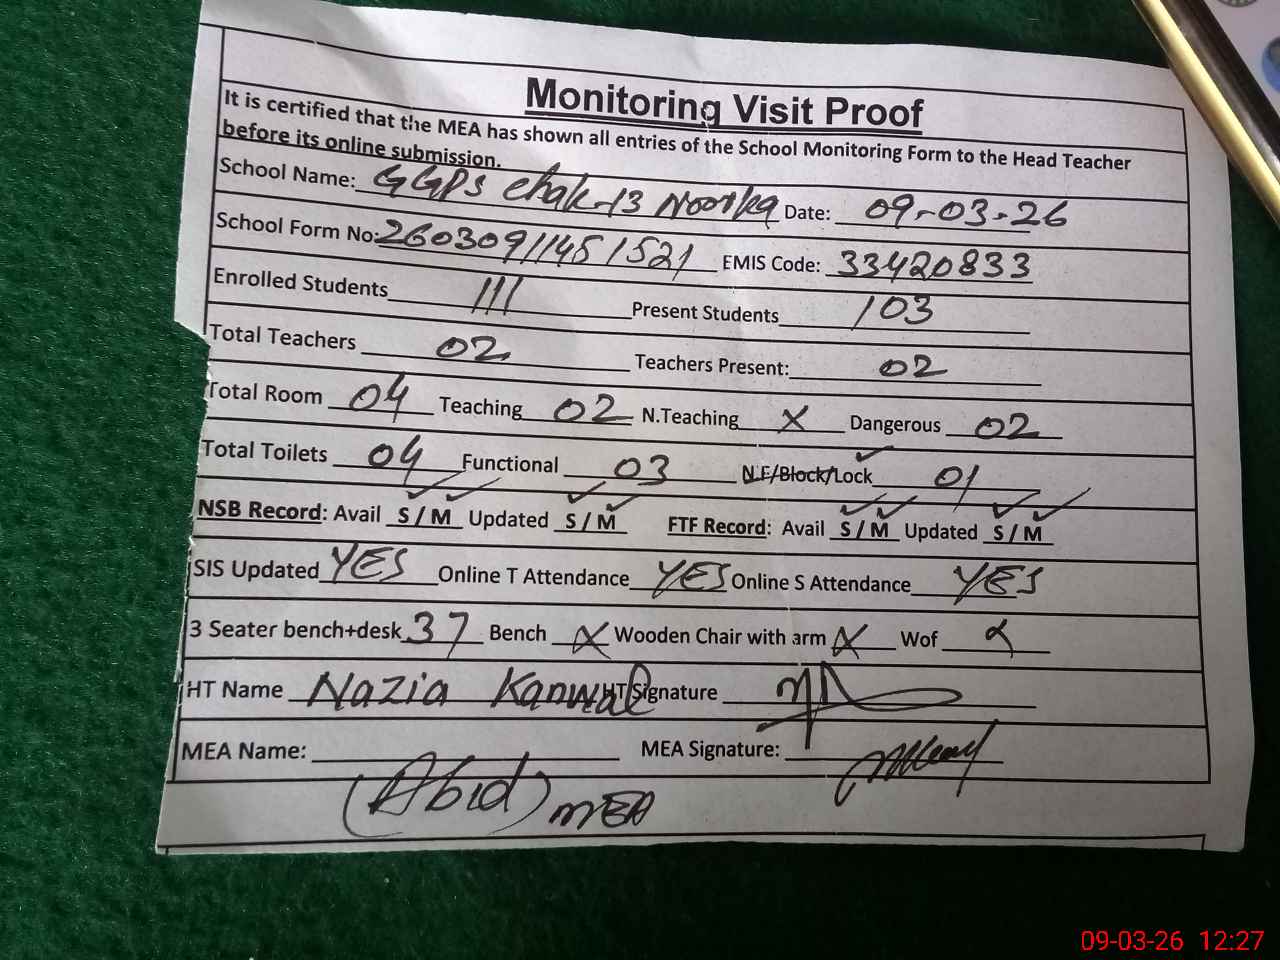 Monitoring Visit Proof
It is certified that the MEA has shown all entries of the School Monitoring Form to the Head Teacher
before its online submission.
School Name: GGPS Chak-13 Noorka Date: 09-03-26
School Form No: 26030911451521 EMIS Code: 33420833
Enrolled Students 111 Present Students 103
Total Teachers 02 Teachers Present: 02
Total Room 04 Teaching 02 N.Teaching X Dangerous 02
Total Toilets 04 Functional 03 N.F/Block/Lock ✓ 01
NSB Record: Avail S ✓ / M ✓ Updated S ✓ / M ✓ FTF Record: Avail S ✓ / M ✓ Updated S ✓ / M ✓
SIS Updated YES Online T Attendance YES Online S Attendance YES
3 Seater bench+desk 37 Bench X Wooden Chair with arm X Wof X
HT Name Nazia Kanwal HT Signature
MEA Name: MEA Signature:
(Abid) MEA
09-03-26 12:27